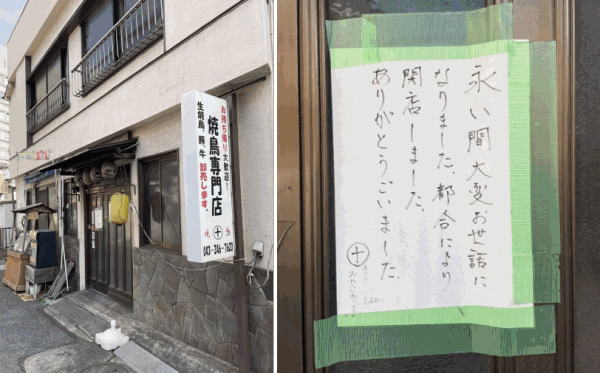 お持ち帰り大歓迎!
焼鳥専門店
生焼鳥、豚、牛 卸売します。
永い間大変お世話に
なりました、都合により
閉店しました、
ありがとうございました、